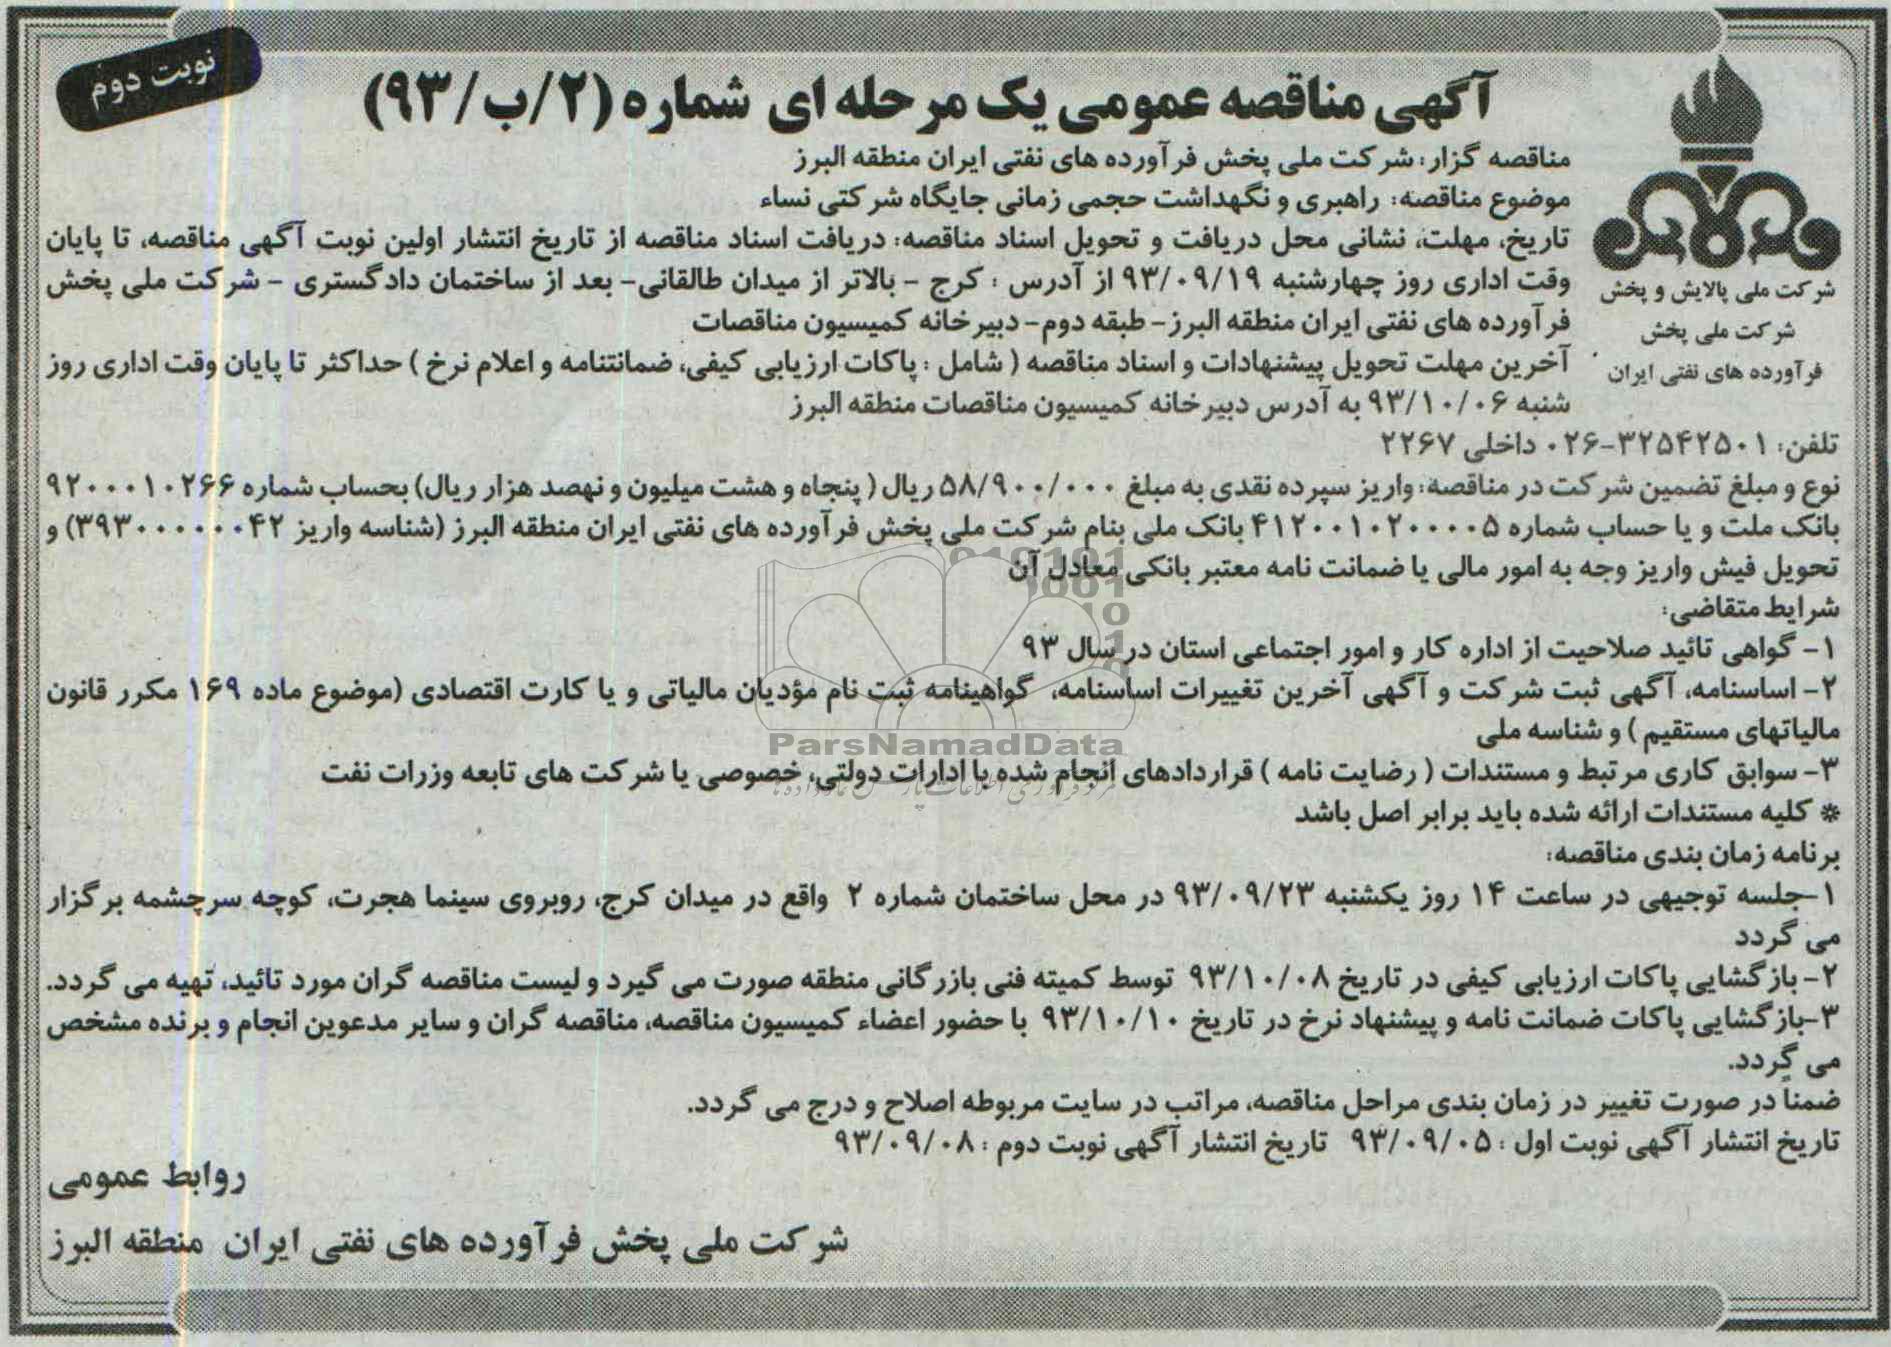 نوبت دوم
آگهی مناقصه عمومی یک مرحله ای شماره (۲/ب/۹۳)
مناقصه گزار: شرکت ملی پخش فرآورده های نفتی ایران منطقه البرز
موضوع مناقصه: راهبری و نگهداشت حجمی زمانی جایگاه شرکتی نساء
تاریخ، مهلت، نشانی محل دریافت و تحویل اسناد مناقصه: دریافت اسناد مناقصه از تاریخ انتشار اولین نوبت آگهی مناقصه، تا پایان
وقت اداری روز چهارشنبه ۹۳/۰۹/۱۹ از آدرس : کرج - بالاتر از میدان طالقانی- بعد از ساختمان دادگستری - شرکت ملی پخش
فرآورده های نفتی ایران منطقه البرز- طبقه دوم- دبیرخانه کمیسیون مناقصات
آخرین مهلت تحویل پیشنهادات و اسناد مناقصه ( شامل : پاکات ارزیابی کیفی، ضمانتنامه و اعلام نرخ ) حداکثر تا پایان وقت اداری روز
شنبه ۹۳/۱۰/۰۶ به آدرس دبیرخانه کمیسیون مناقصات منطقه البرز
شرکت ملی پالایش و پخش
شرکت ملی پخش
فرآورده های نفتی ایران
تلفن: ۳۲۵۴۲۵۰۱-۰۲۶ داخلی ۲۲۶۷
نوع و مبلغ تضمین شرکت در مناقصه: واریز سپرده نقدی به مبلغ ۵۸/۹۰۰/۰۰۰ ریال ( پنجاه و هشت میلیون و نهصد هزار ریال) بحساب شماره ۹۲۰۰۰۱۰۲۶۶
بانک ملت و یا حساب شماره ۴۱۲۰۰۱۰۲۰۰۰۰۵ بانک ملی بنام شرکت ملی پخش فرآورده های نفتی ایران منطقه البرز (شناسه واریز ۳۹۳۰۰۰۰۰۰۴۲) و
تحویل فیش واریز وجه به امور مالی یا ضمانت نامه معتبر بانکی معادل آن
شرایط متقاضی:
۱- گواهی تائید صلاحیت از اداره کار و امور اجتماعی استان در سال ۹۳
۲- اساسنامه، آگهی ثبت شرکت و آگهی آخرین تغییرات اساسنامه، گواهینامه ثبت نام مؤدیان مالیاتی و یا کارت اقتصادی (موضوع ماده ۱۶۹ مکرر قانون
مالیاتهای مستقیم ) و شناسه ملی
ParsNamadData
۳- سوابق کاری مرتبط و مستندات ( رضایت نامه ) قراردادهای انجام شده با ادارات دولتی، خصوصی یا شرکت های تابعه وزرات نفت
* کلیه مستندات ارائه شده باید برابر اصل باشد
برنامه زمان بندی مناقصه:
۱-جلسه توجیهی در ساعت ۱۴ روز یکشنبه ۹۳/۰۹/۲۳ در محل ساختمان شماره ۲ واقع در میدان کرج، روبروی سینما هجرت، کوچه سرچشمه برگزار
می گردد
۲- بازگشایی پاکات ارزیابی کیفی در تاریخ ۹۳/۱۰/۰۸ توسط کمیته فنی بازرگانی منطقه صورت می گیرد و لیست مناقصه گران مورد تائید، تهیه می گردد.
۳-بازگشایی پاکات ضمانت نامه و پیشنهاد نرخ در تاریخ ۹۳/۱۰/۱۰ با حضور اعضاء کمیسیون مناقصه، مناقصه گران و سایر مدعوین انجام و برنده مشخص
می گردد.
ضمناً در صورت تغییر در زمان بندی مراحل مناقصه، مراتب در سایت مربوطه اصلاح و درج می گردد.
تاریخ انتشار آگهی نوبت اول : ۹۳/۰۹/۰۵ تاریخ انتشار آگهی نوبت دوم : ۹۳/۰۹/۰۸
روابط عمومی
شرکت ملی پخش فرآورده های نفتی ایران منطقه البرز